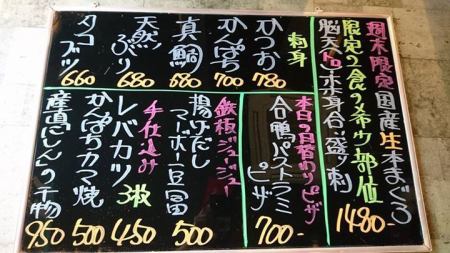 週末限定国産生本まぐろ
限定の食の希少部位
脳天トロ赤身合い盛り刺
1480-
刺身
かつお
780
かんぱち
700
真鯛
580
天然ぶり
680
タコブツ
660
本日の日替わりピザ
合鴨パストラミピザ
700-
鉄板ジュージュー
揚げだしマーボー豆冨
500
手仕込み
レバカツ 3枚
450
かんぱちカマ焼
500
産直にしんの干物
950